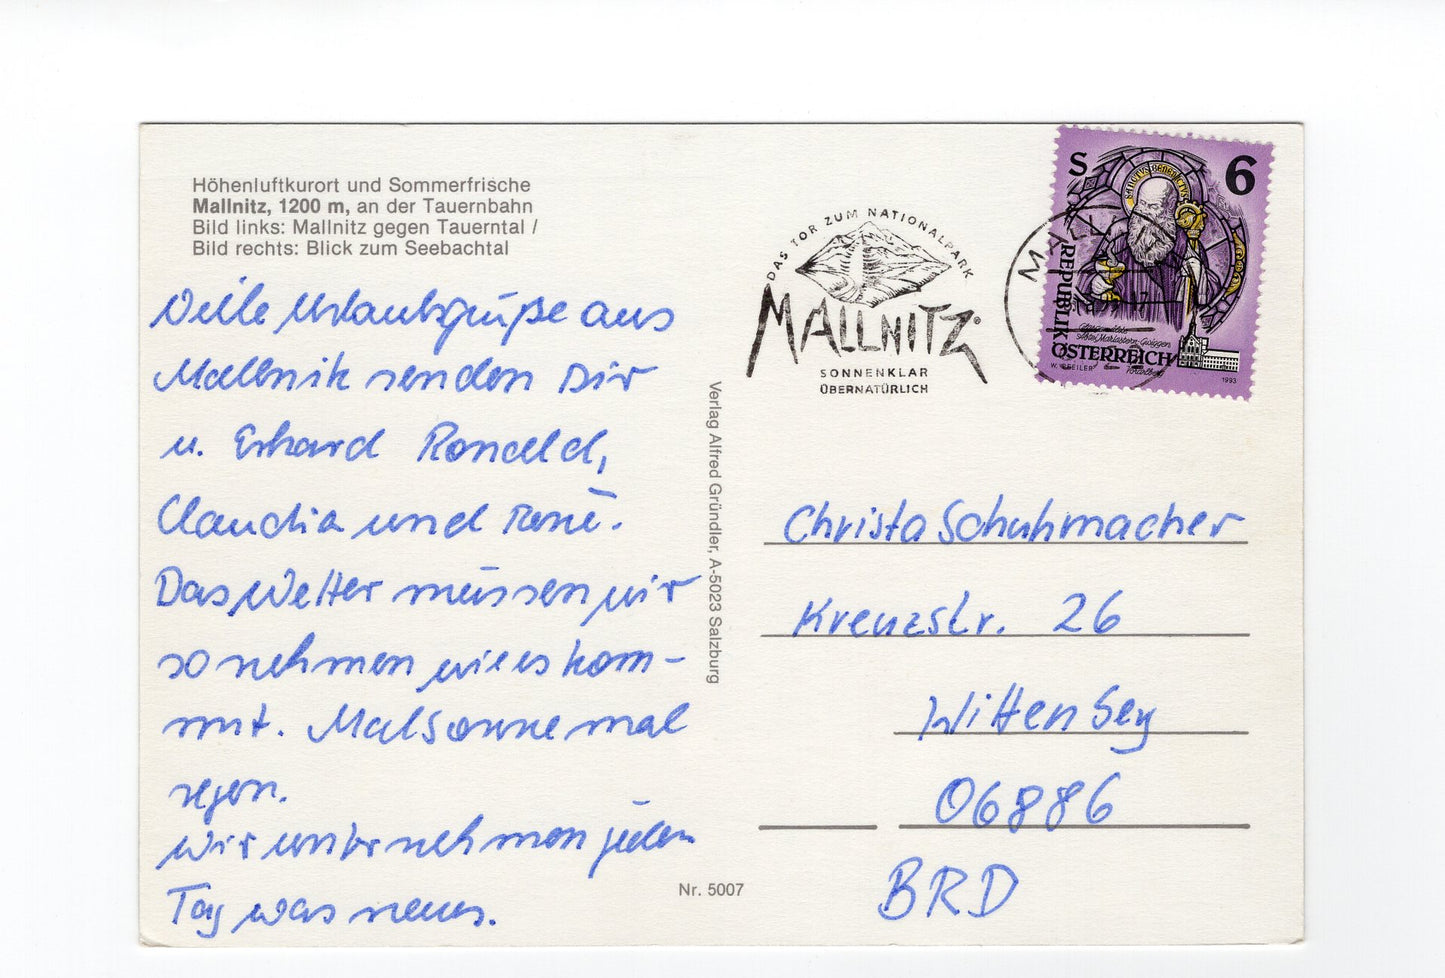 Höhenluftkurort und Sommerfrische
Mallnitz, 1200 m, an der Tauernbahn
Bild links: Mallnitz gegen Tauerntal /
Bild rechts: Blick zum Seebachtal
Viele Urlaubsgrüße aus
Mallnitz senden Dir
u. Erhard Ronald,
Claudia und René.
Das Wetter müssen wir
so nehmen wie es kom-
mt. Mal Sonne mal
regen.
Wir unternehmen jeden
Tag was neues.
Verlag Alfred Gründler, A-5023 Salzburg
Nr. 5007
DAS TOR ZUM NATIONALPARK
MALLNITZ
SONNENKLAR
ÜBERNATÜRLICH
S 6
SANCTUS BENEDICTUS
REPUBLIK
ÖSTERREICH
1993
Christa Schuhmacher
Kreuzstr. 26
Wittenberg
06886
BRD